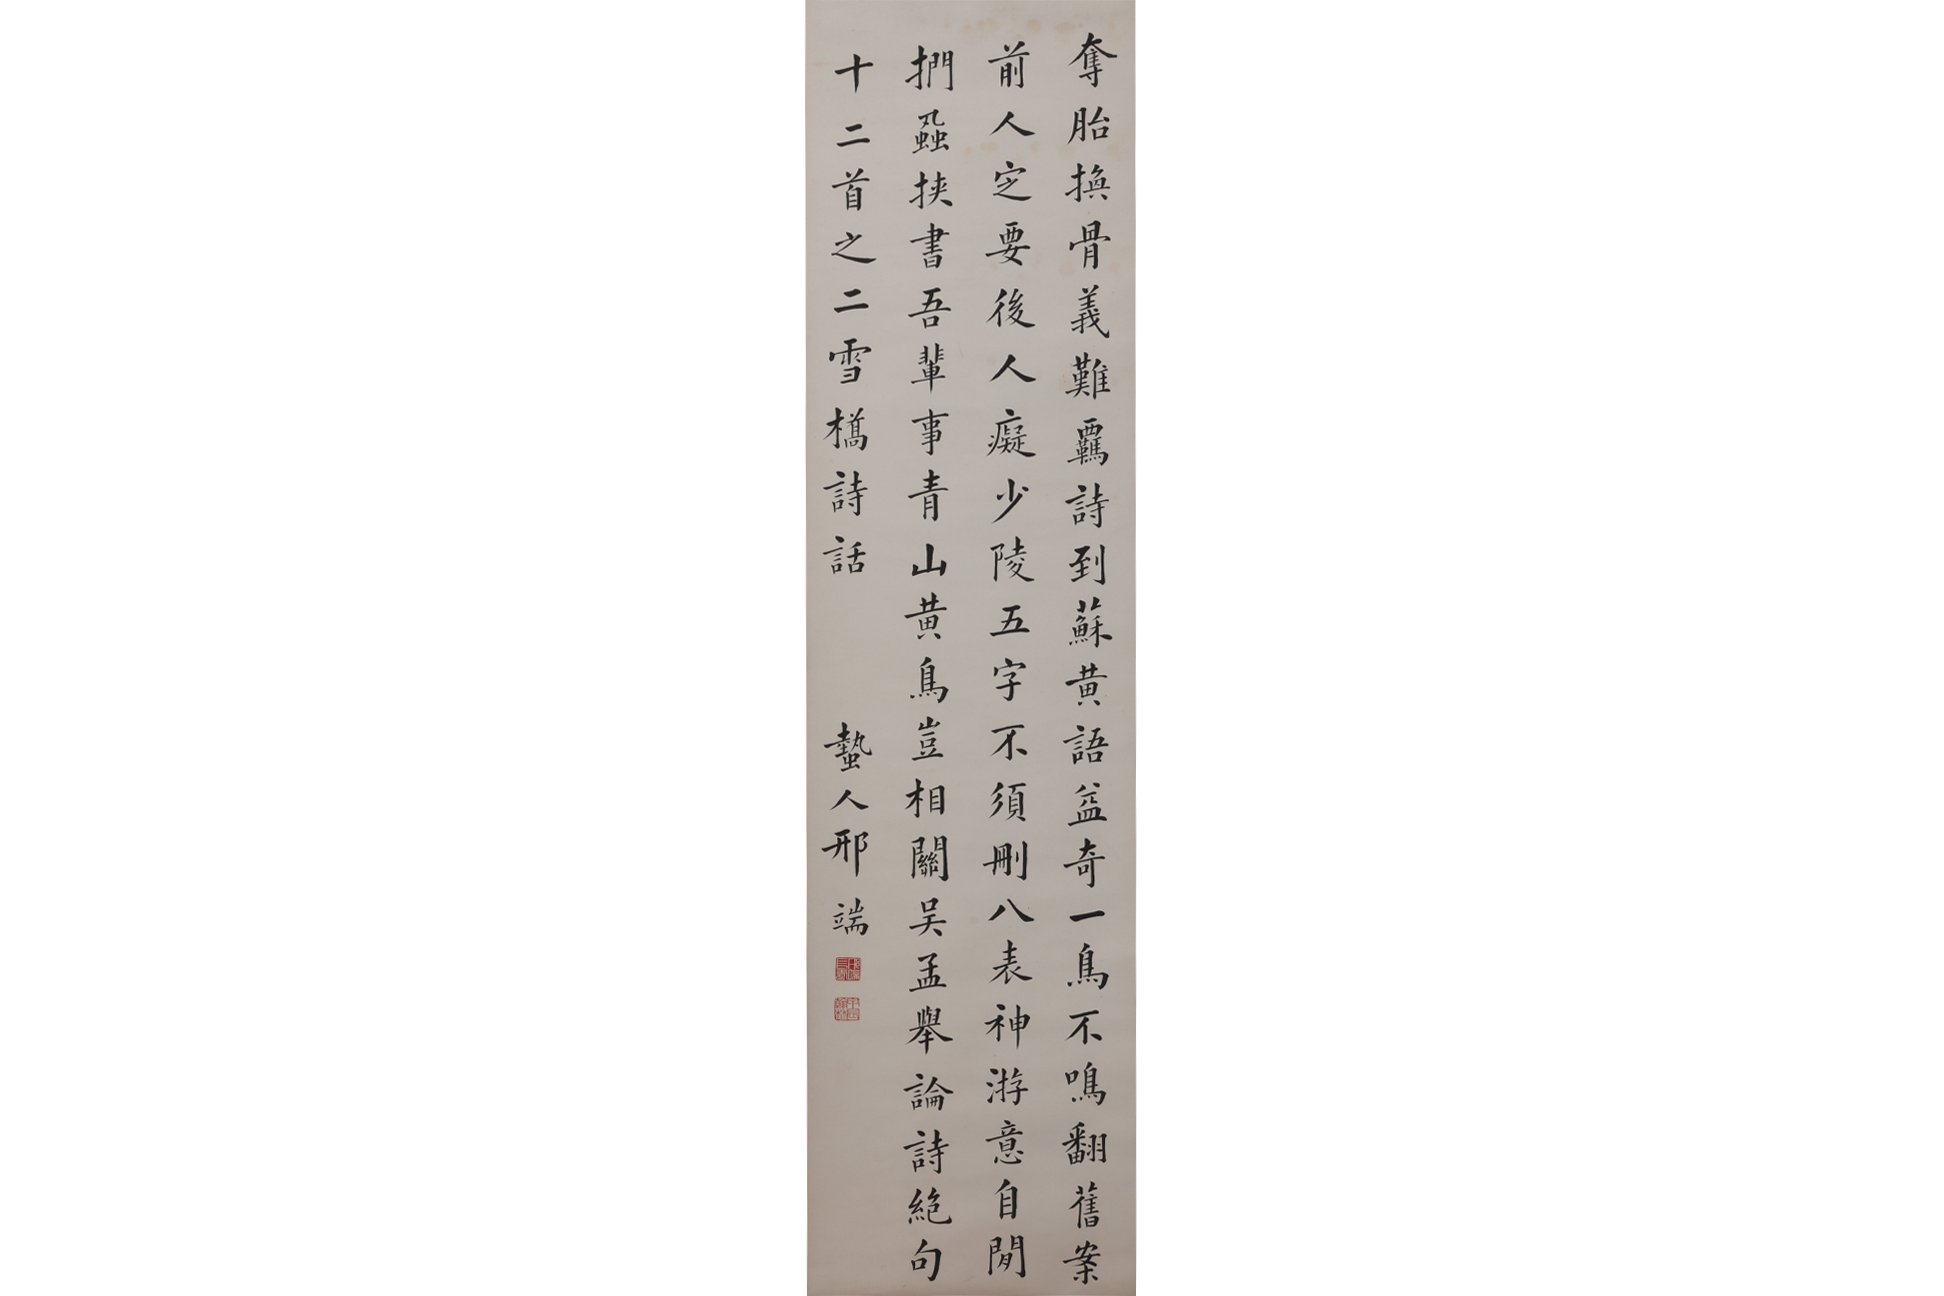 奪胎換骨義難羈詩到蘇黃語益奇一鳥不鳴翻舊案
前人定要後人癡少陵五字不須刪八表神游意自閒
捫蝨挾書吾輩事青山黃鳥豈相關吳孟舉論詩絕句
十二首之二雪橋詩話
蟄人邢端